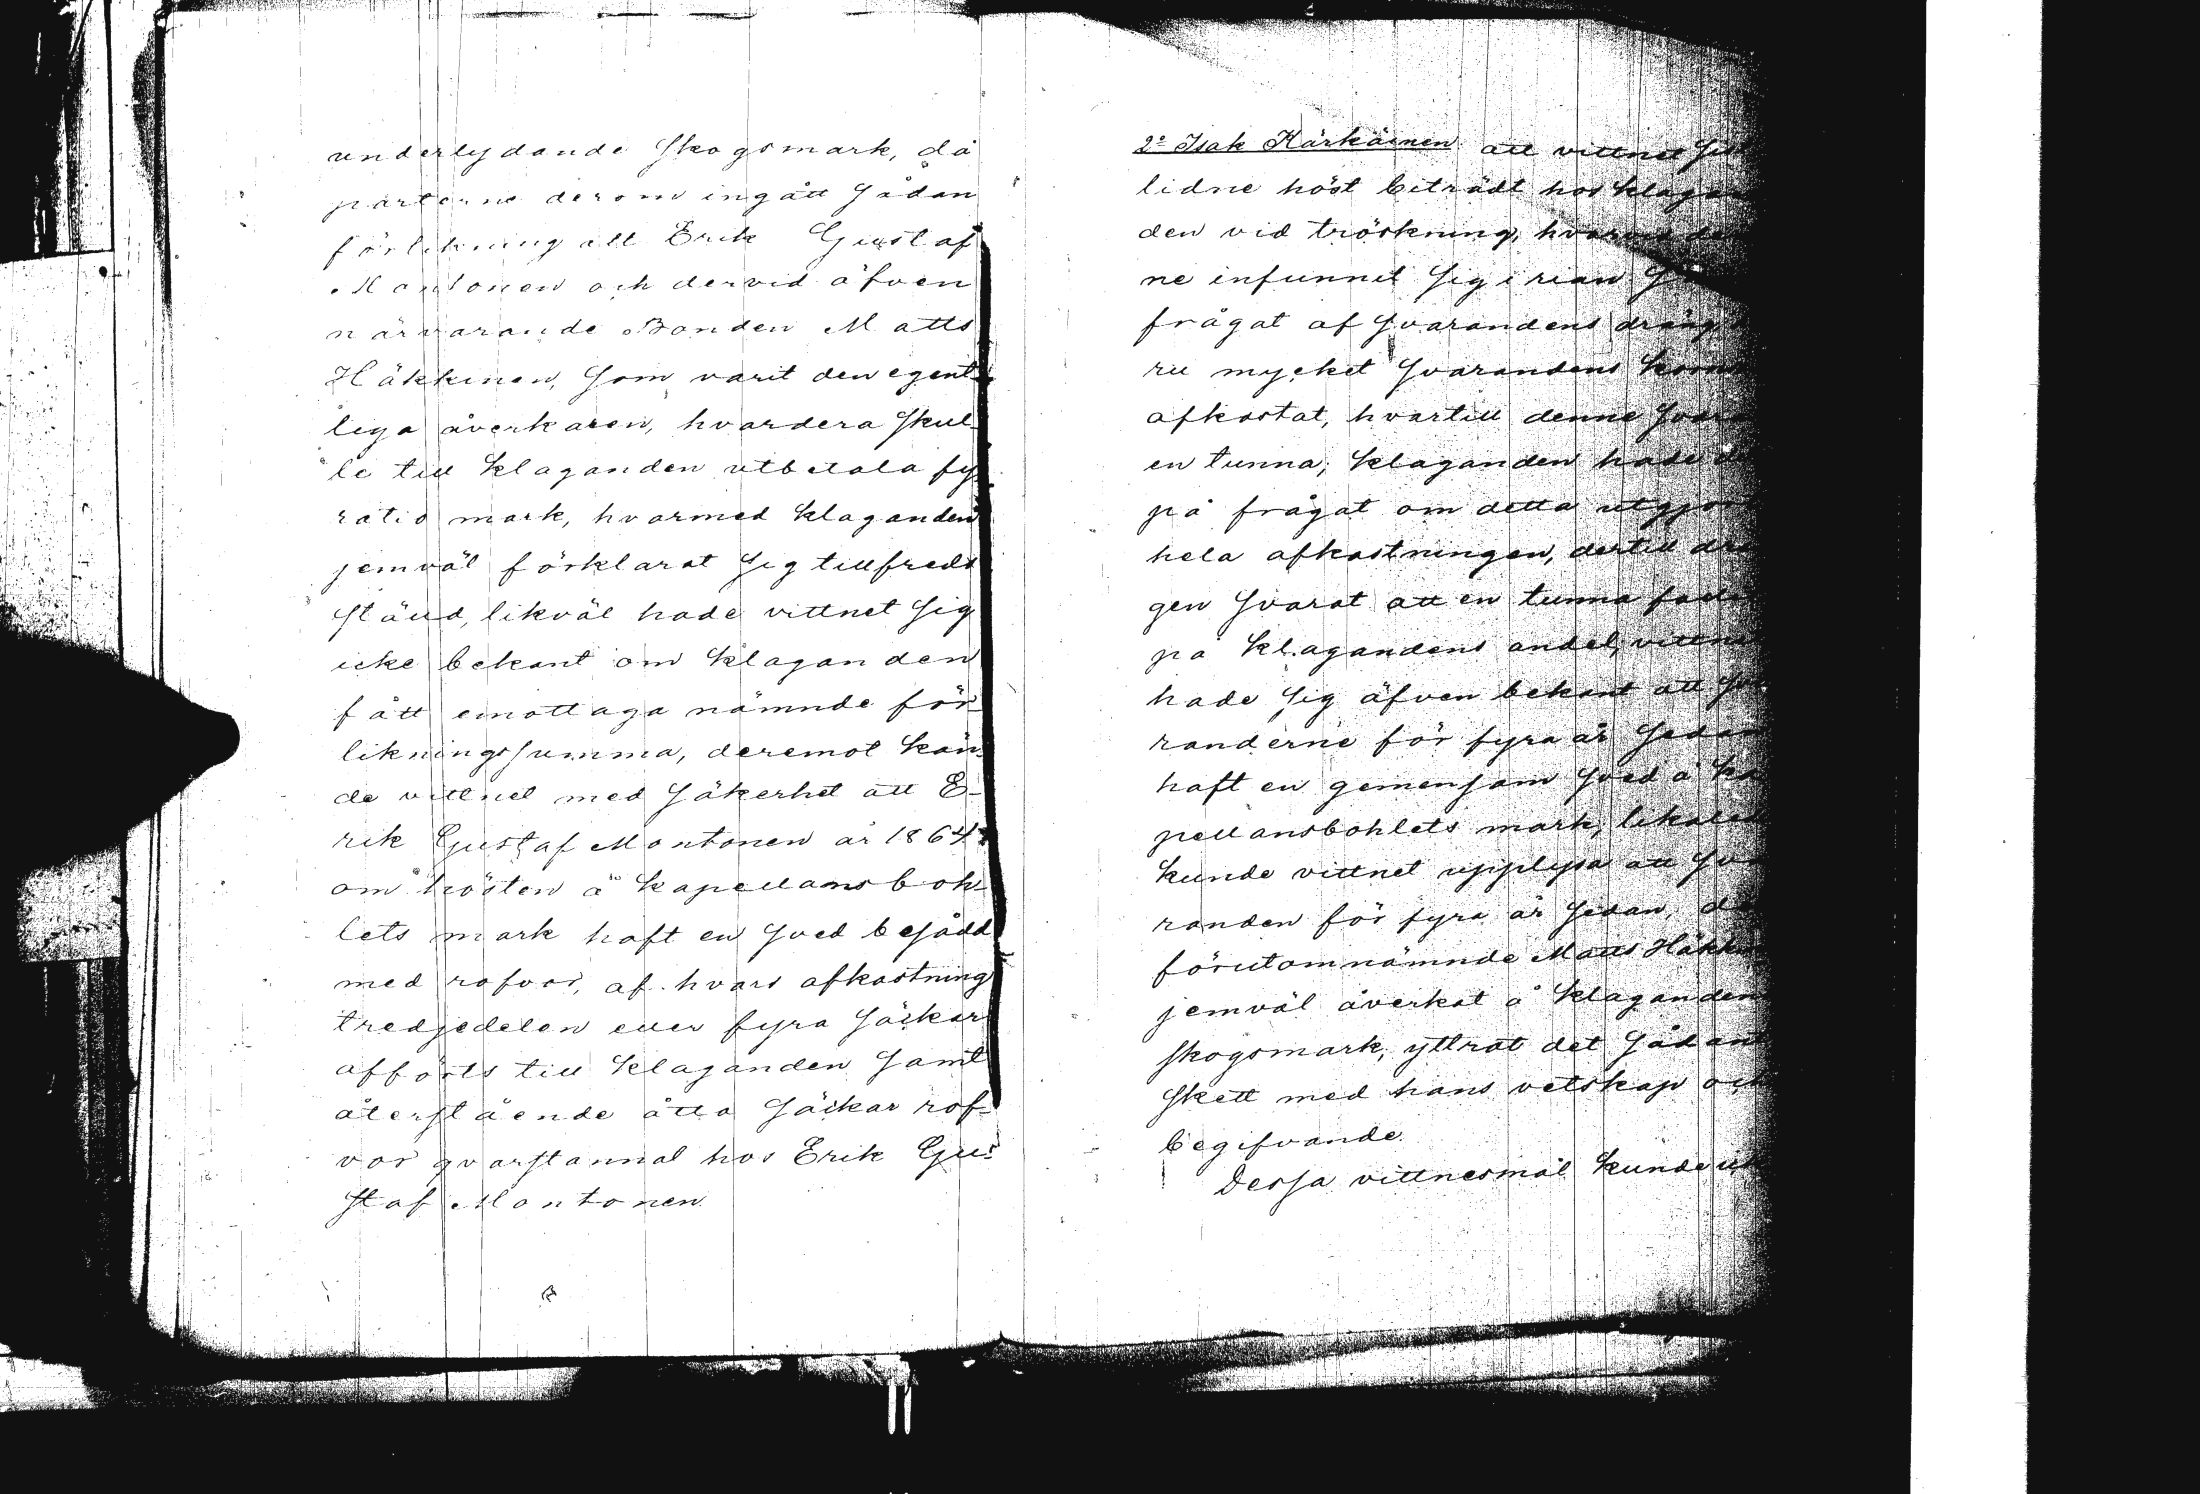 underlydande skogsmark, då
parterne derom ingått sådan
förlikning att Erik Gustaf
Montonen och dervid äfven
närvarande Bonden Matts
Häkkinen, som varit den egent-
liga åverkaren, hvardera skul-
le till klaganden utbetala fy-
ratio mark, hvarmed klaganden
jemväl förklarat sig tillfreds
stäld, likväl hade vittnet sig
icke bekant om klaganden
fått emottaga nämnde för-
likningssumma, deremot kän-
de vittnet med säkerhet att E-
rik Gustaf Montonen år 1864
om hösten å kapellansboh-
lets mark haft en sved besådd
med rofvor, af hvars afkastning
tredjedelen eller fyra säckar
afförts till klaganden samt
återstående åtta säckar rof-
vor qvarstannat hos Erik Gu-
staf Montonen.
2o Isak Kärkäinen att vittnet
lidne höst biträdt hos klagan
den vid tröskning,
ne infunnit sig i rian
frågat af svarandens dräng
ru mycket svarandens
afkastat, hvartill denne
en tunna; klaganden hade
på frågat om detta
hela afkastningen, dertill
gen svarat att en tunna
på klagandens andel,
hade sig äfven bekant att
randerne för fyra år sedan
haft en gemensam sved å ka
pellansbohlets mark,
kunde vittnet upplysa att sva
randen för fyra år sedan, då
förutomnämnde Matts
jemväl åverkat å klaganden
skogsmark, yttrat det sådant
skett med hans vetskap och
begifvande.
Dessa vittnesmål kunde